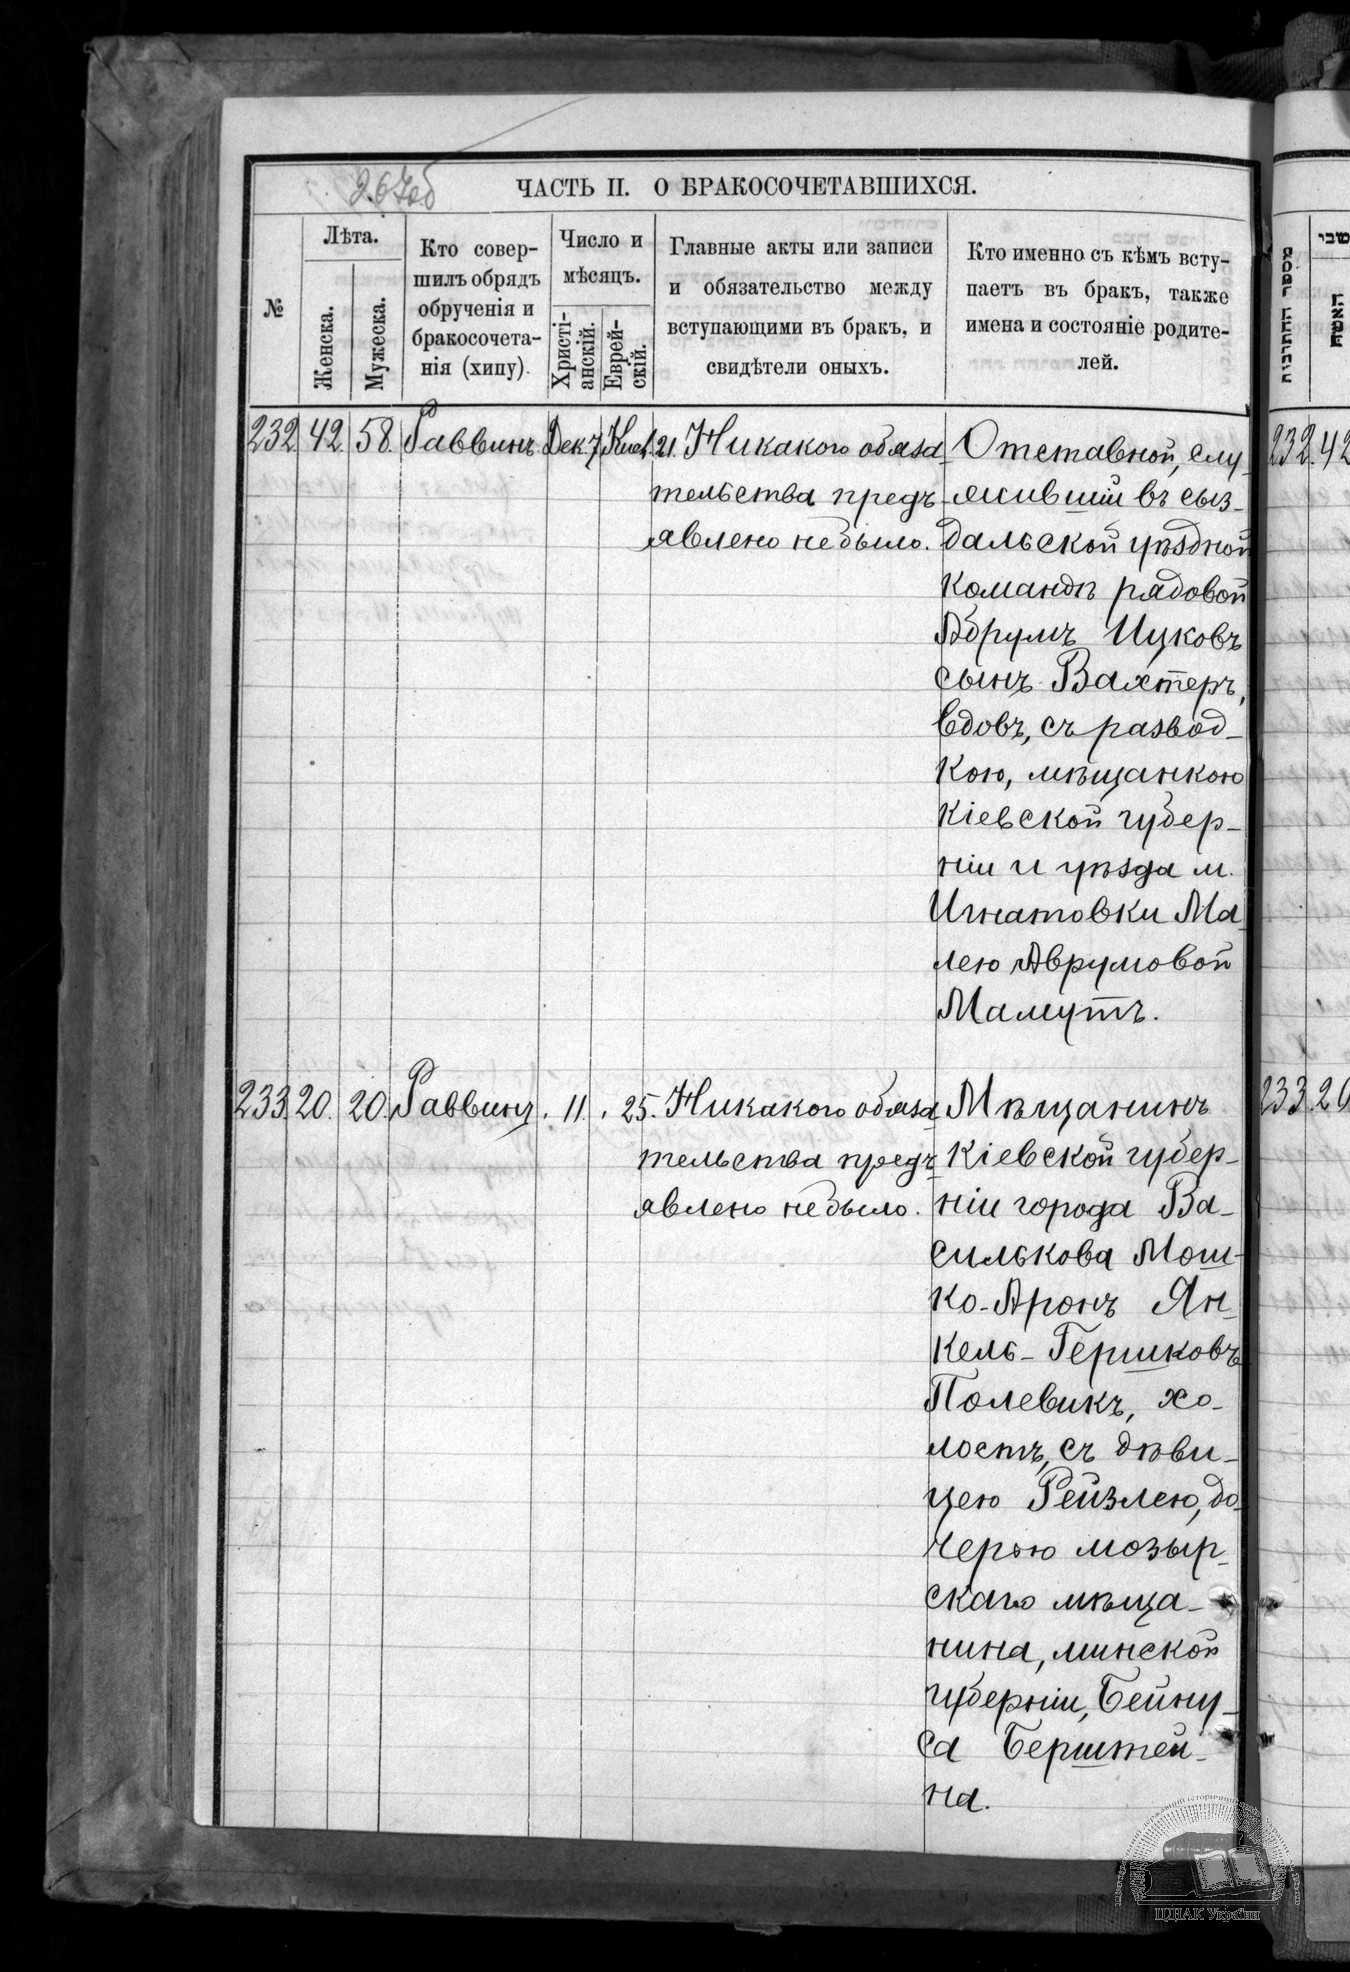 267об
ЧАСТЬ II. О БРАКОСОЧЕТАВШИХСЯ.
№
Лѣта.
Женска.
Мужеска.
Кто совер-
шилъ обрядъ
обрученія и
бракосочета-
нія (хипу)
Число и
мѣсяцъ.
Христі-
анскій.
Еврей-
скій.
Главные акты или записи
и обязательство между
вступающими въ бракъ, и
свидѣтели оныхъ.
Кто именно съ кѣмъ всту-
паетъ въ бракъ, также
имена и состояніе родите-
лей.
232. 42. 58. Раввинъ Дек. 7 Кисл. 21. Никакого обяза-
тельства предъ-
явлено небыло.
Отставной, слу-
жившій въ сыз-
дальской уѣздной
командѣ рядовой
Абрумъ Ицковъ
сынъ Вахтеръ,
вдовъ, съ развод-
кою, мѣщанкою
Кіевской губер-
ніи и уѣзда м.
Игнатовки Ма-
лею Аврумовой
Мамутъ.
233. 20. 20. Раввинъ. 11. 25. Никакого обяза-
тельства предъ-
явлено небыло.
Мѣщанинъ
Кіевской губер-
ніи города Ва-
силькова Мош-
ко-Аронъ Ян-
кель-Гершковъ
Полевикъ, хо-
лостъ, съ дѣви-
цею Рейзлею, до-
черью мозыр-
скаго мѣща-
нина, минской
губерніи, Бейну-
са Берштей-
на.
מספר החתונות
שני
האשה
232. 42
233. 20
ЦДІАК України